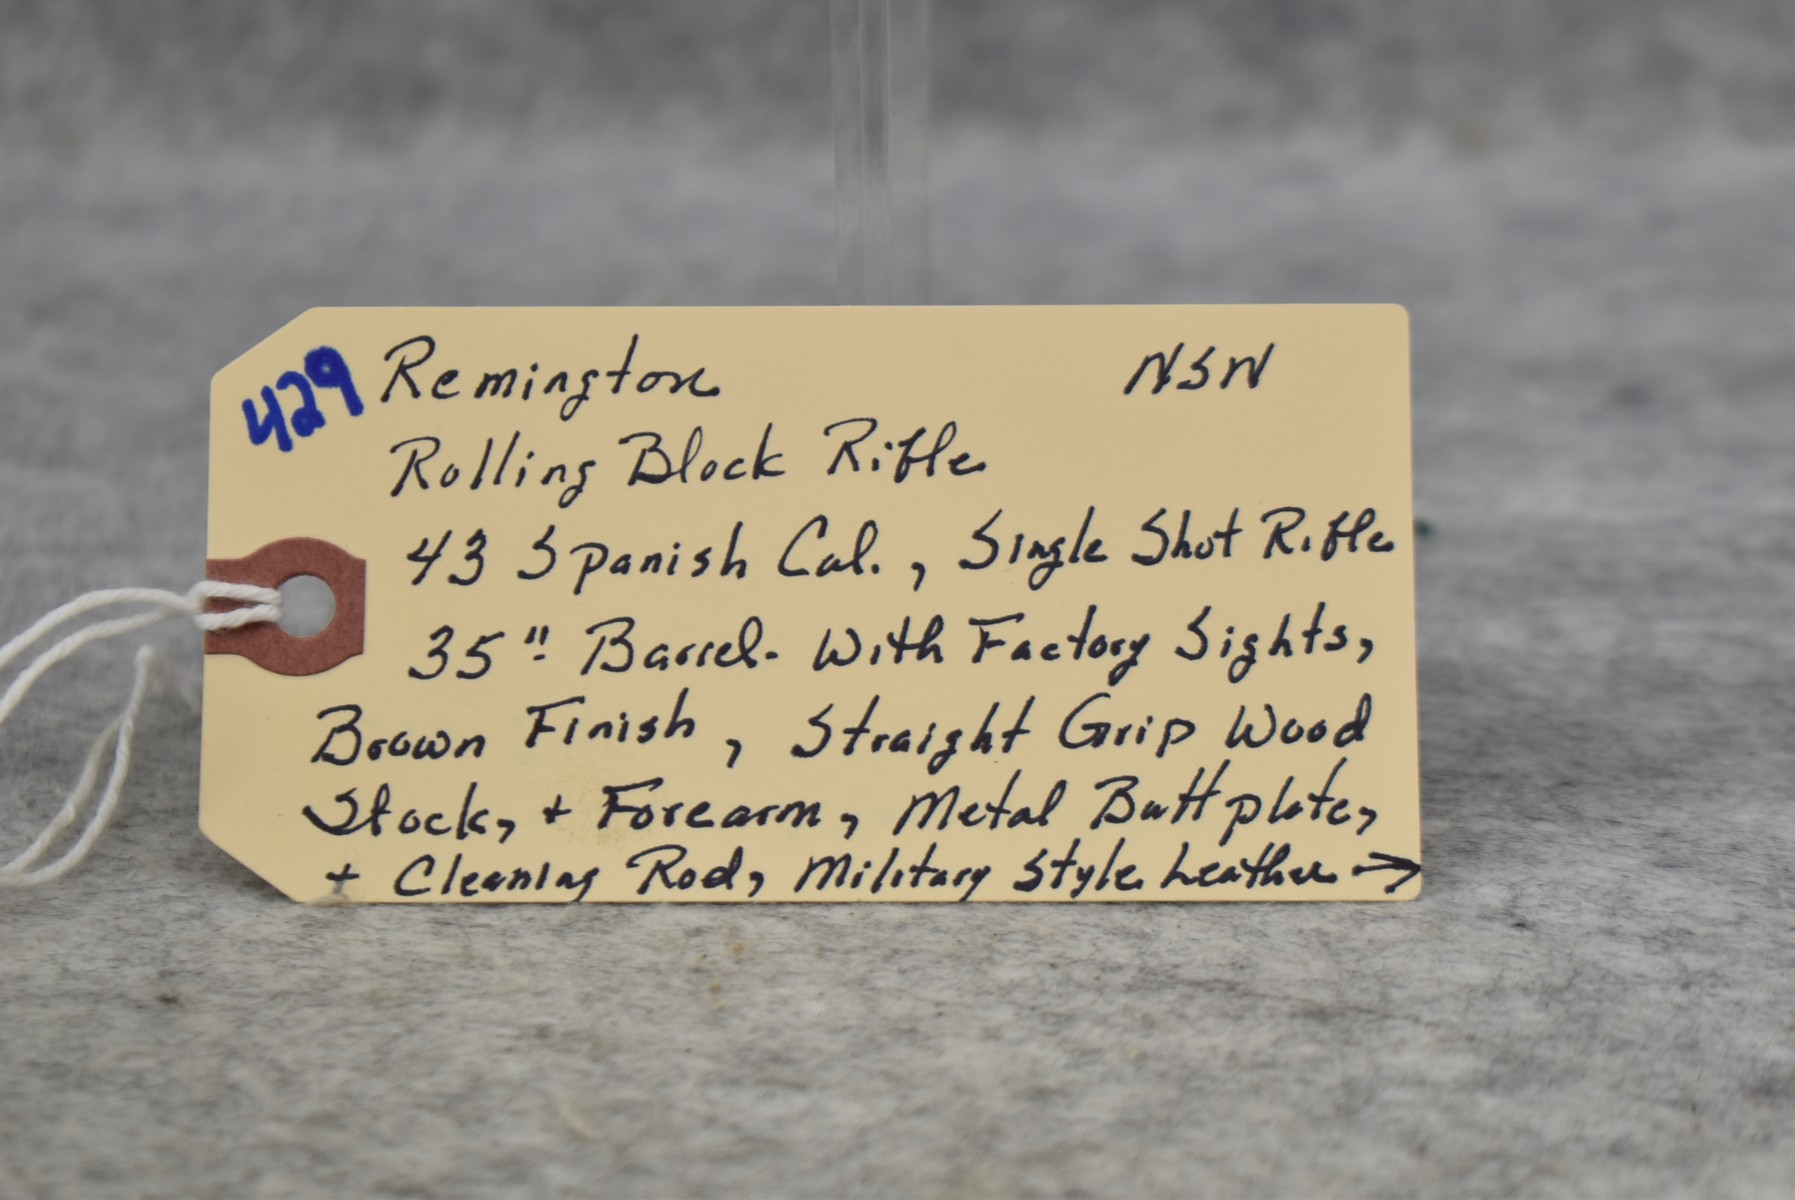 429 Remington NSN
Rolling Block Rifle
43 Spanish Cal., Single Shot Rifle
35" Barrel. With Factory Sights,
Brown Finish, Straight Grip Wood
Stock, + Forearm, Metal Buttplate,
+ Cleaning Rod, Military Style Leather →